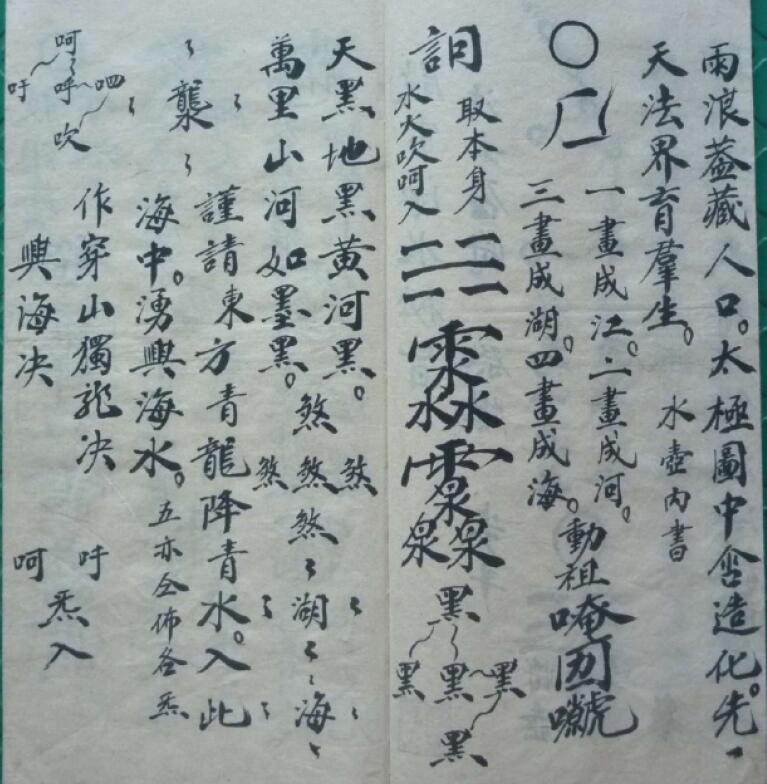 雨浪蓋藏人口。太極圖中含造化。先、
天法界育羣生。 水壺內書
一畫成江。二畫成河。
三畫成湖。四畫成海。動祖唵
取本身
水火吹呵入
黑
黑 黑 黑
黑
天黑地黑黃河黑。
萬里山河如墨黑。
煞
煞 煞 煞
煞
湖
海
襲
謹請東方青龍降青水。入此
海中。湧興海水。五亦仝佈各炁
作穿山獨龍決
興海決
呵
吁 呼 呬
吹
呵 吁
炁入